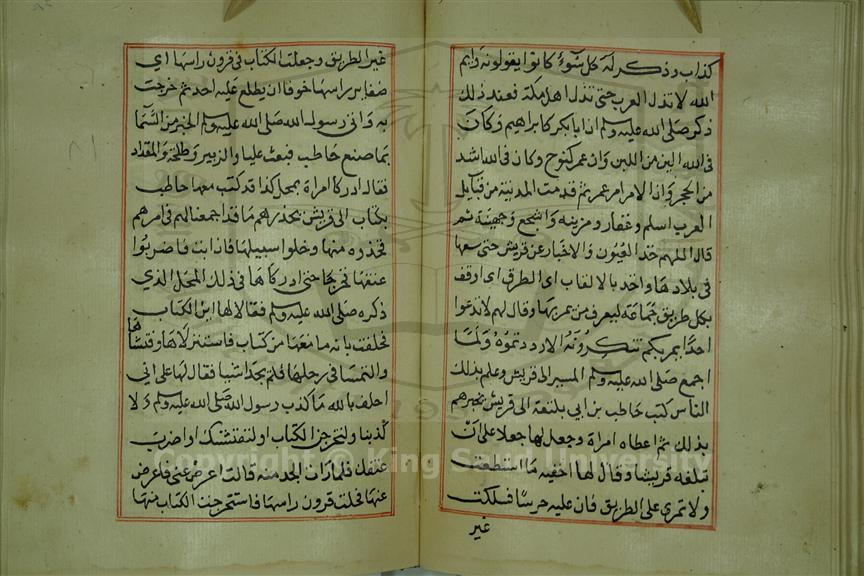 كذاب وذكر له كل سوء كانوا يقولونه وايم
الله لا تذل العرب حتى تذل اهل مكة فعند ذلك
ذكر صلى الله عليه وسلم ان ابا بكر كابراهيم وكان
فى الله الين من اللبن وان عمر كنوح وكان فى الله اشد
من الحجر وان الامر امر عمر ثم قدمت المدينة من قبايل
العرب اسلم وغفار ومزينه واشجع وجهينة ثم
قال اللهم خذ العيون والاخبار عن قريش حتى نبغتها
فى بلادها واخذ بالانقاب اى الطرق اى اوقف
بكل طريق جماعة ليعرف من يمر بها وقال لهم لا تدعوا
احدا يمر بكم تنكرونه الا رددتموه ولما
اجمع صلى الله عليه وسلم المسير الى قريش وعلم بذلك
الناس كتب حاطب بن ابى بلتعة الى قريش يخبرهم
بذلك ثم اعطاه امراة وجعل لها جعلا على ان
تبلغه قريشا وقال لها اخفيه ما استطعت
ولا تمرى على الطريق فان عليه حرسا فسلكت
غير
غير الطريق وجعلت الكتاب فى قرون راسها اى
ضفاير راسها خوفا ان يطلع عليه احد ثم خرجت
به واتى رسول الله صلى الله عليه وسلم الخبر من السما
بما صنع حاطب فبعث عليا والزبير وطلحة والمقداد
فقال ادركا امراة بمحل كذا قد كتب معها حاطب
بكتاب الى قريش يحذرهم ما قد اجمعنا لهم فى امرهم
فخذوه منها وخلوا سبيلها فان ابت فاضربوا
عنقها فخرجا حتى ادركاها فى ذلك المحل الذي
ذكره صلى الله عليه وسلم فقالا لها اين الكتاب
فحلفت بالله ما معها من كتاب فاستنزلاها وفتشاها
والتمسا فى رحلها فلم يجدا شيا فقال لها على انى
احلف بالله ما كذب رسول الله صلى الله عليه وسلم ولا
كذبنا ولتخرجن الكتاب او لنفتشنك او اضرب
عنقك فلما رات الجد منه قالت اعرض عنى فاعرض
عنها فحلت قرون راسها فاستخرجت الكتاب منها
Copyright © King Saud University